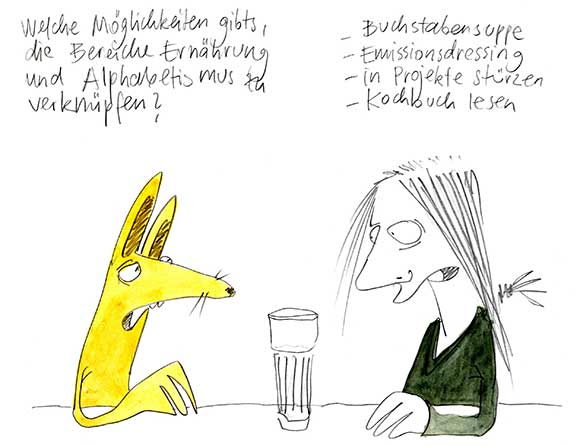 Welche Möglichkeiten gibts,
die Bereiche Ernährung
und Alphabetismus zu
verknüpfen?
- Buchstabensuppe
- Emissionsdressing
- in Projekte stürzen
- Kochbuch lesen